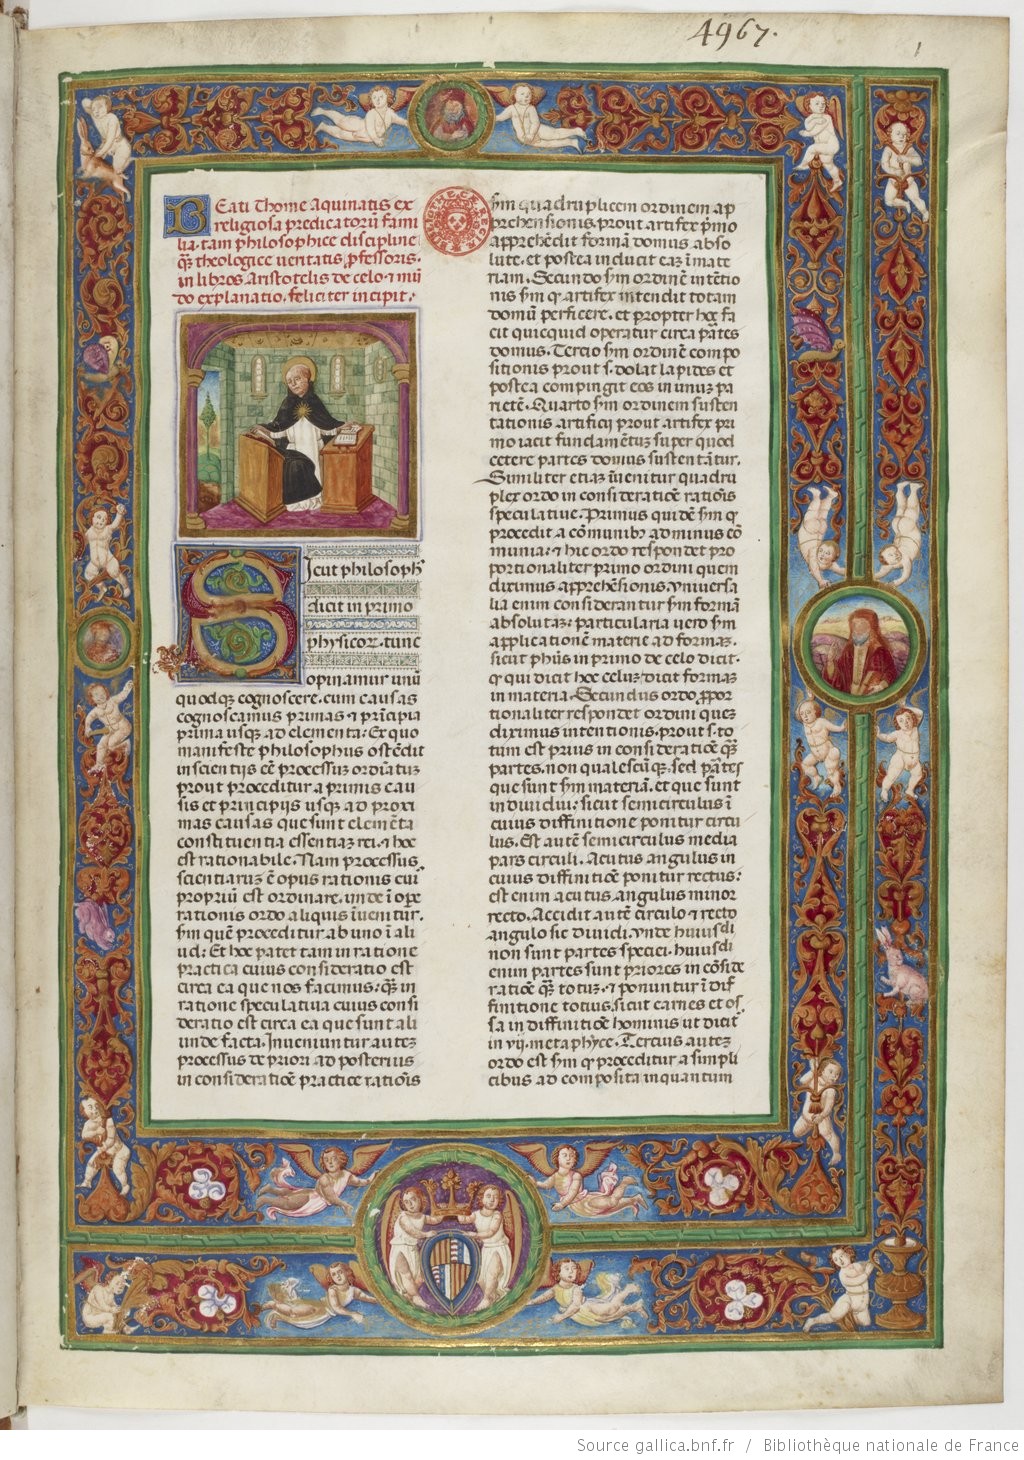 4967.
1
BEati Thome Aquinatis ex
religiosa predicatorū fami
lia. tam philosophice discipline
q̄ȝ theologice veritatis p̄fessoris.
in libros Aristotelis de celo ⁊ mū
do explanatio. feliciter incipit.
SIcut philosoph⁹
dicit in primo
physicoꝝ. tunc
opinamur unū
quodqȝ cognoscere. cum causas
cognoscamus primas ⁊ prīcipia
prima usqȝ ad elementa: Ex quo
manifeste philosophus ostēdit
in scientijs eē processuȝ ordīatuȝ
prout proceditur a primis cau
sis et principijs usqȝ ad proxi
mas causas que sunt elemēta
constituentia essentiaȝ rei. ⁊ hoc
est rationabile. Nam processus
scientiaruȝ ē opus rationis cui⁹
propriū est ordinare. unde ī oꝑe
rationis ordo aliquis īuenitur.
scd̄m quem proceditur ab uno ī ali
ud: Et hoc patet tam in ratione
practica cuius consideratio est
circa ea que nos facimus: q̄ȝ in
ratione speculatiua cuius consi
deratio est circa ea que sunt ali
unde facta. Inueniuntur auteȝ
processus de priori ad posterius
in consideratiōe practice ratiōis
scd̄m quadruplicem ordinem ap
prehensionis. prout artifex p̄mo
apprehēdit formam domus abso
lute. et postea inducit eaȝ ī mate
riam. Secundo scd̄m ordinē intētio
nis scd̄m q̄ artifex intendit totam
domū perficere. et propter hoc fa
cit quicquid operatur circa p̄tes
domus. Tercio scd̄m ordinē compo
sitionis prout s. dolat lapides et
postea compingit eos in unuȝ pa
rietē. Quarto scd̄m ordinem susten
tationis artificij prout artifex pri
mo iacit fundamētuȝ super quod
cetere partes domus sustentātur.
Similiter etiaȝ īuenitur quadru
plex ordo in consideratiōe ratiōis
speculatiue. Primus quidē scd̄m q̄
procedit a cōmunibȝ ad minus cō
munia: ⁊ hic ordo respondet pro
portionaliter primo ordini quem
diximus apprehēsionis. vniuersa
lia enim considerantur scd̄m formā
absolutaȝ: particularia uero scd̄m
applicationē materie ad formaȝ.
sicut ph̄us in primo de celo dicit.
q̄ qui dicit hoc celuȝ: dicit formaȝ
in materia. Secundus ordo ꝓpor
tionaliter respondet ordini queȝ
diximus intentionis. prout s. to
tum est prius in consideratiōe q̄ȝ
partes. non qualescūqȝ. sed p̄tes
que sunt scd̄m materiam. et que sunt
indiuidui: sicut semicirculus ī
cuius diffinitione ponitur circu
lus. Est autē semicirculus media
pars circuli. Acutus angulus in
cuius diffinitiōe ponitur rectus:
est enim acutus angulus minor
recto. Accidit autē circulo ⁊ recto
angulo sic diuidi. vnde huiusdi
non sunt partes speciei. huiusdi
enim partes sunt priores in cōside
ratiōe q̄ȝ totuȝ. ⁊ ponuntur ī dif
finitione totius. sicut carnes et os
sa in diffinitiōe hominis ut dicit⁹
in vij. metaphyce. Tercius auteȝ
ordo est scd̄m q̄ proceditur a simpli
cibus ad composita inquantum
Source gallica.bnf.fr / Bibliothèque nationale de France